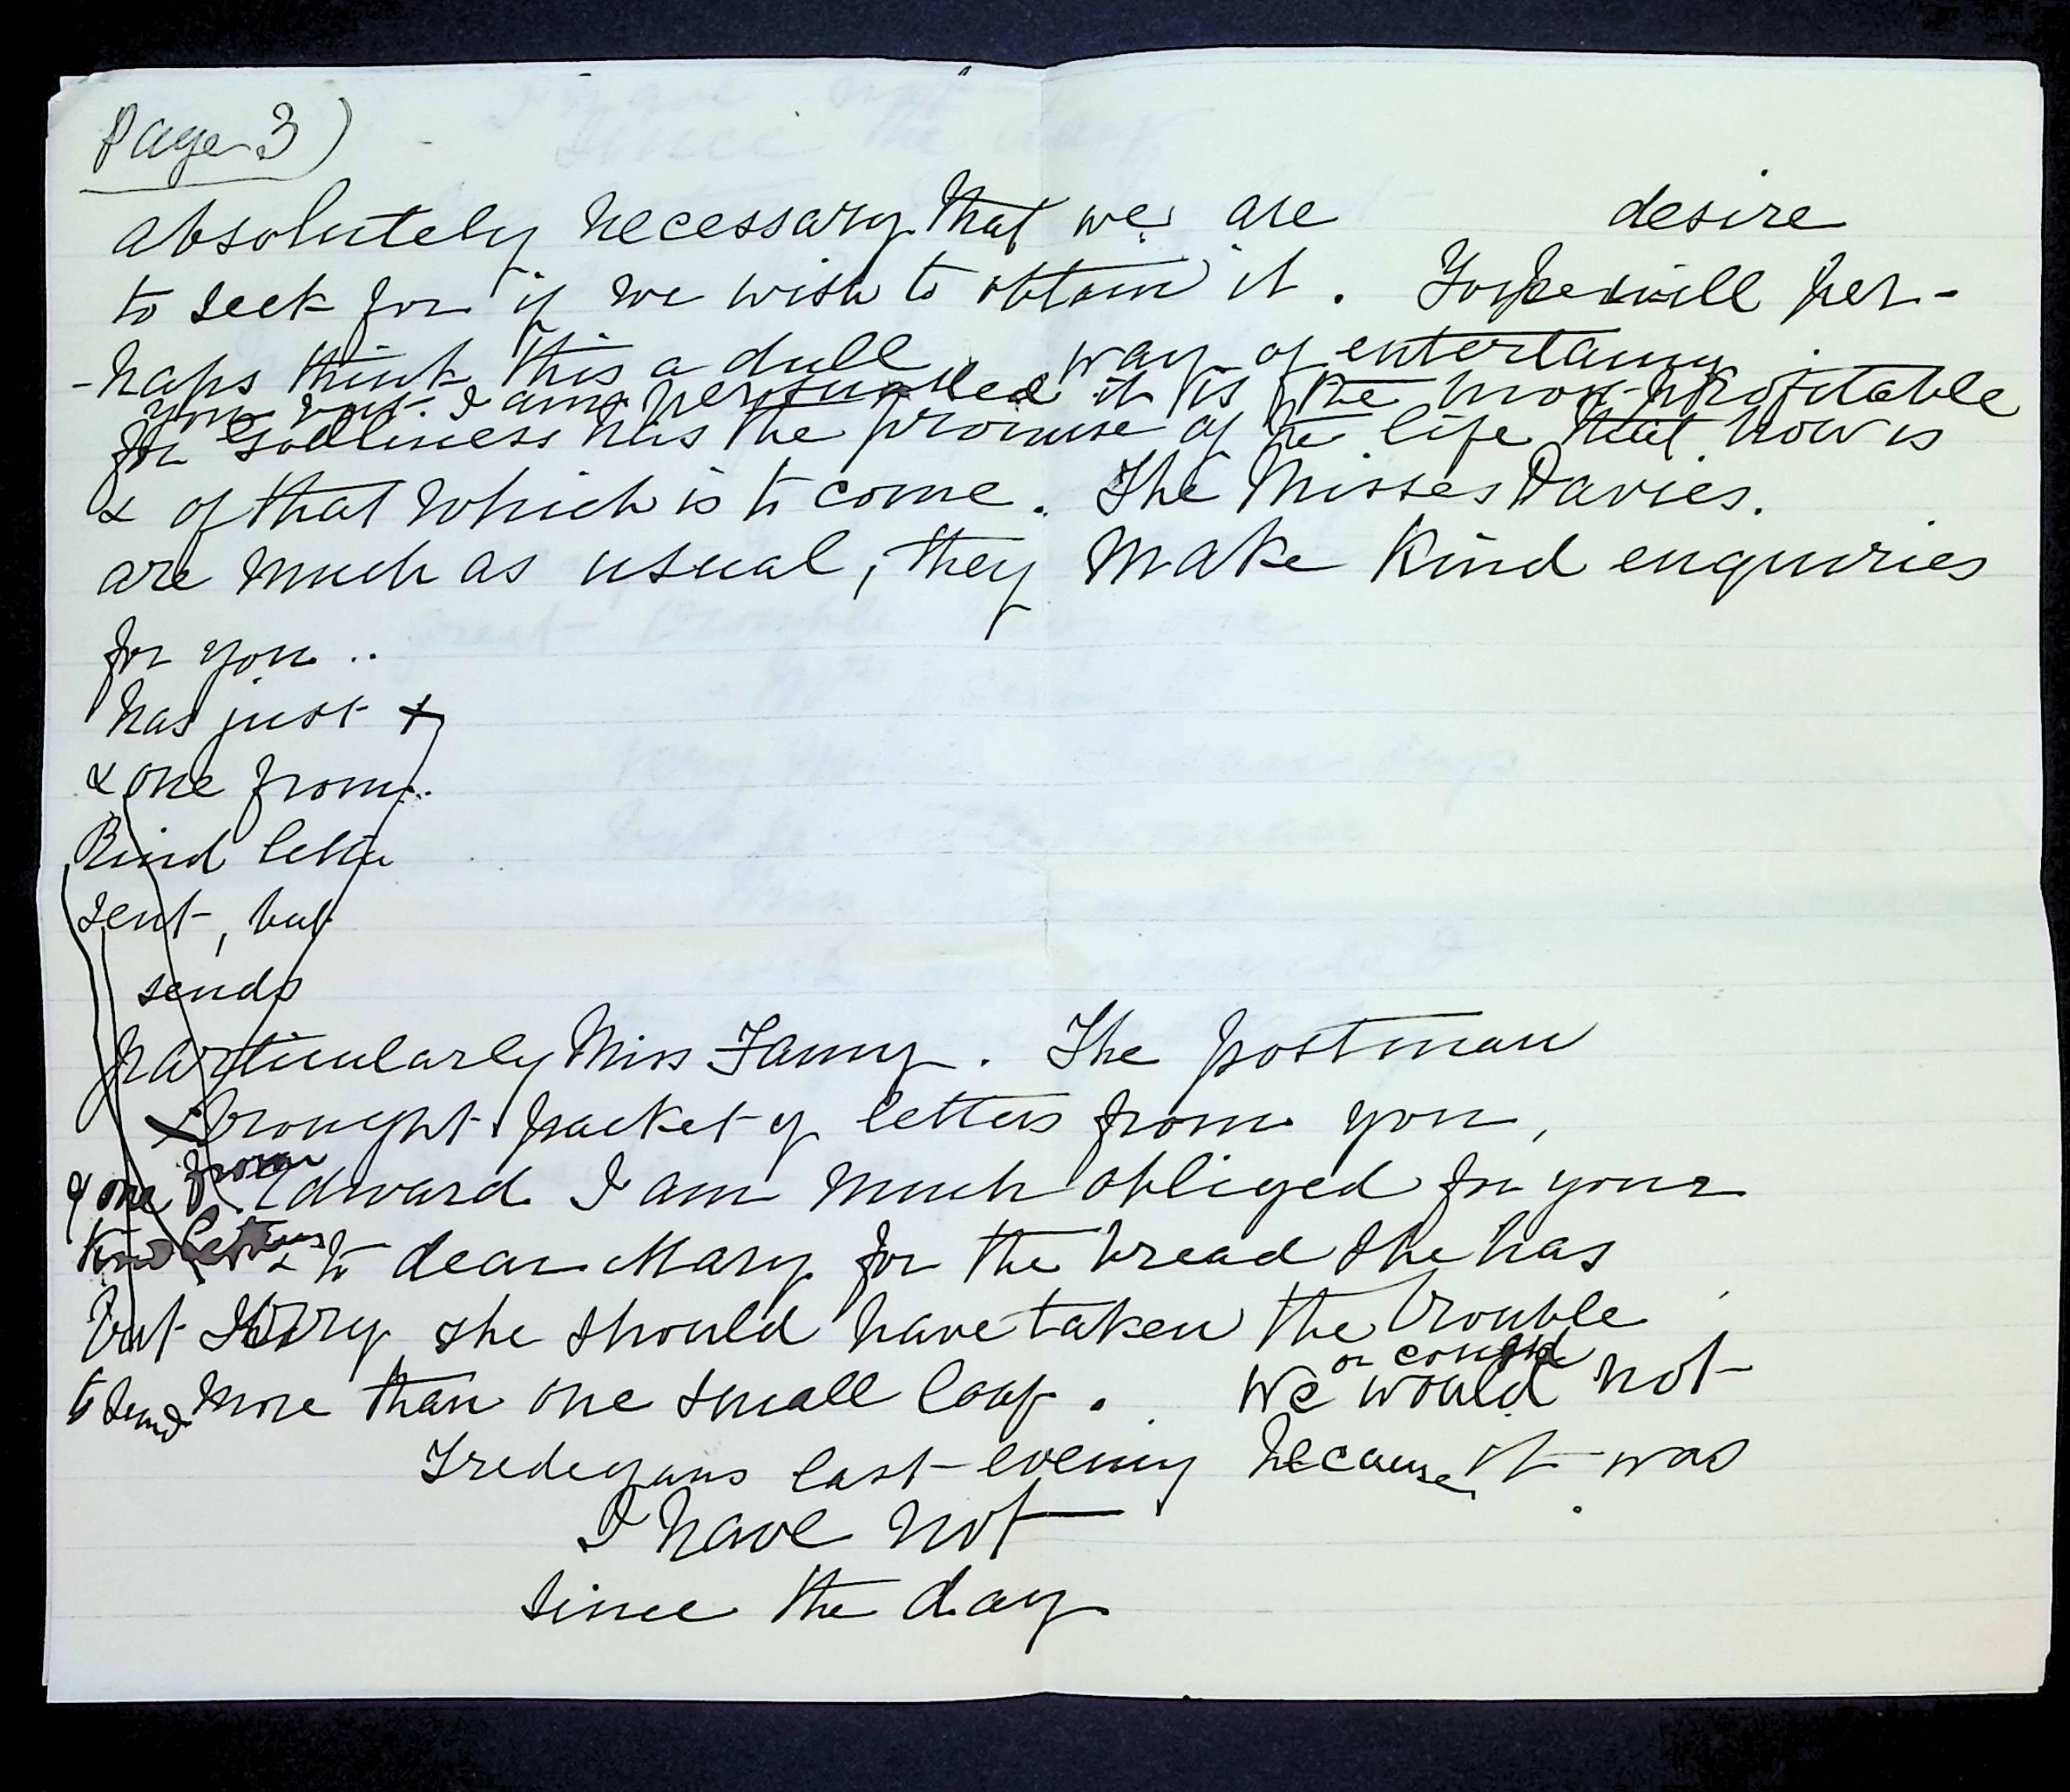 Page 3)
absolutely necessary that we are desire
to seek for if we wish to obtain it. will per-
-haps think this a dull way of entertaining
you but I am persuaded it is the most profitable
for Godliness has the promise of the life that now is
& of that which is to come. The Misses Davies.
are much as usual, they make kind enquiries
for you ..
has just
& one from..
Kind letter
sent, but
sends
particularly Miss Fanny. The postman
brought packet of letters from you,
& one from Edward I am much obliged for your
kind letters & to dear Mary for the bread she has
but sorry she should have taken the trouble
to send more than one small loaf. We would or could not
Tredegars last evening because it was
I have not
since the day